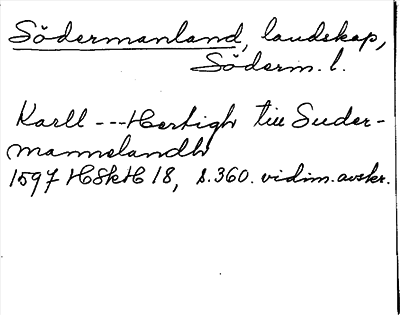 Södermanland, landskap,
Söderm. l.
Karll --- Hertigh till Suder-
mannelandh
1597 HSkH 18, s. 360. vidim. avskr.